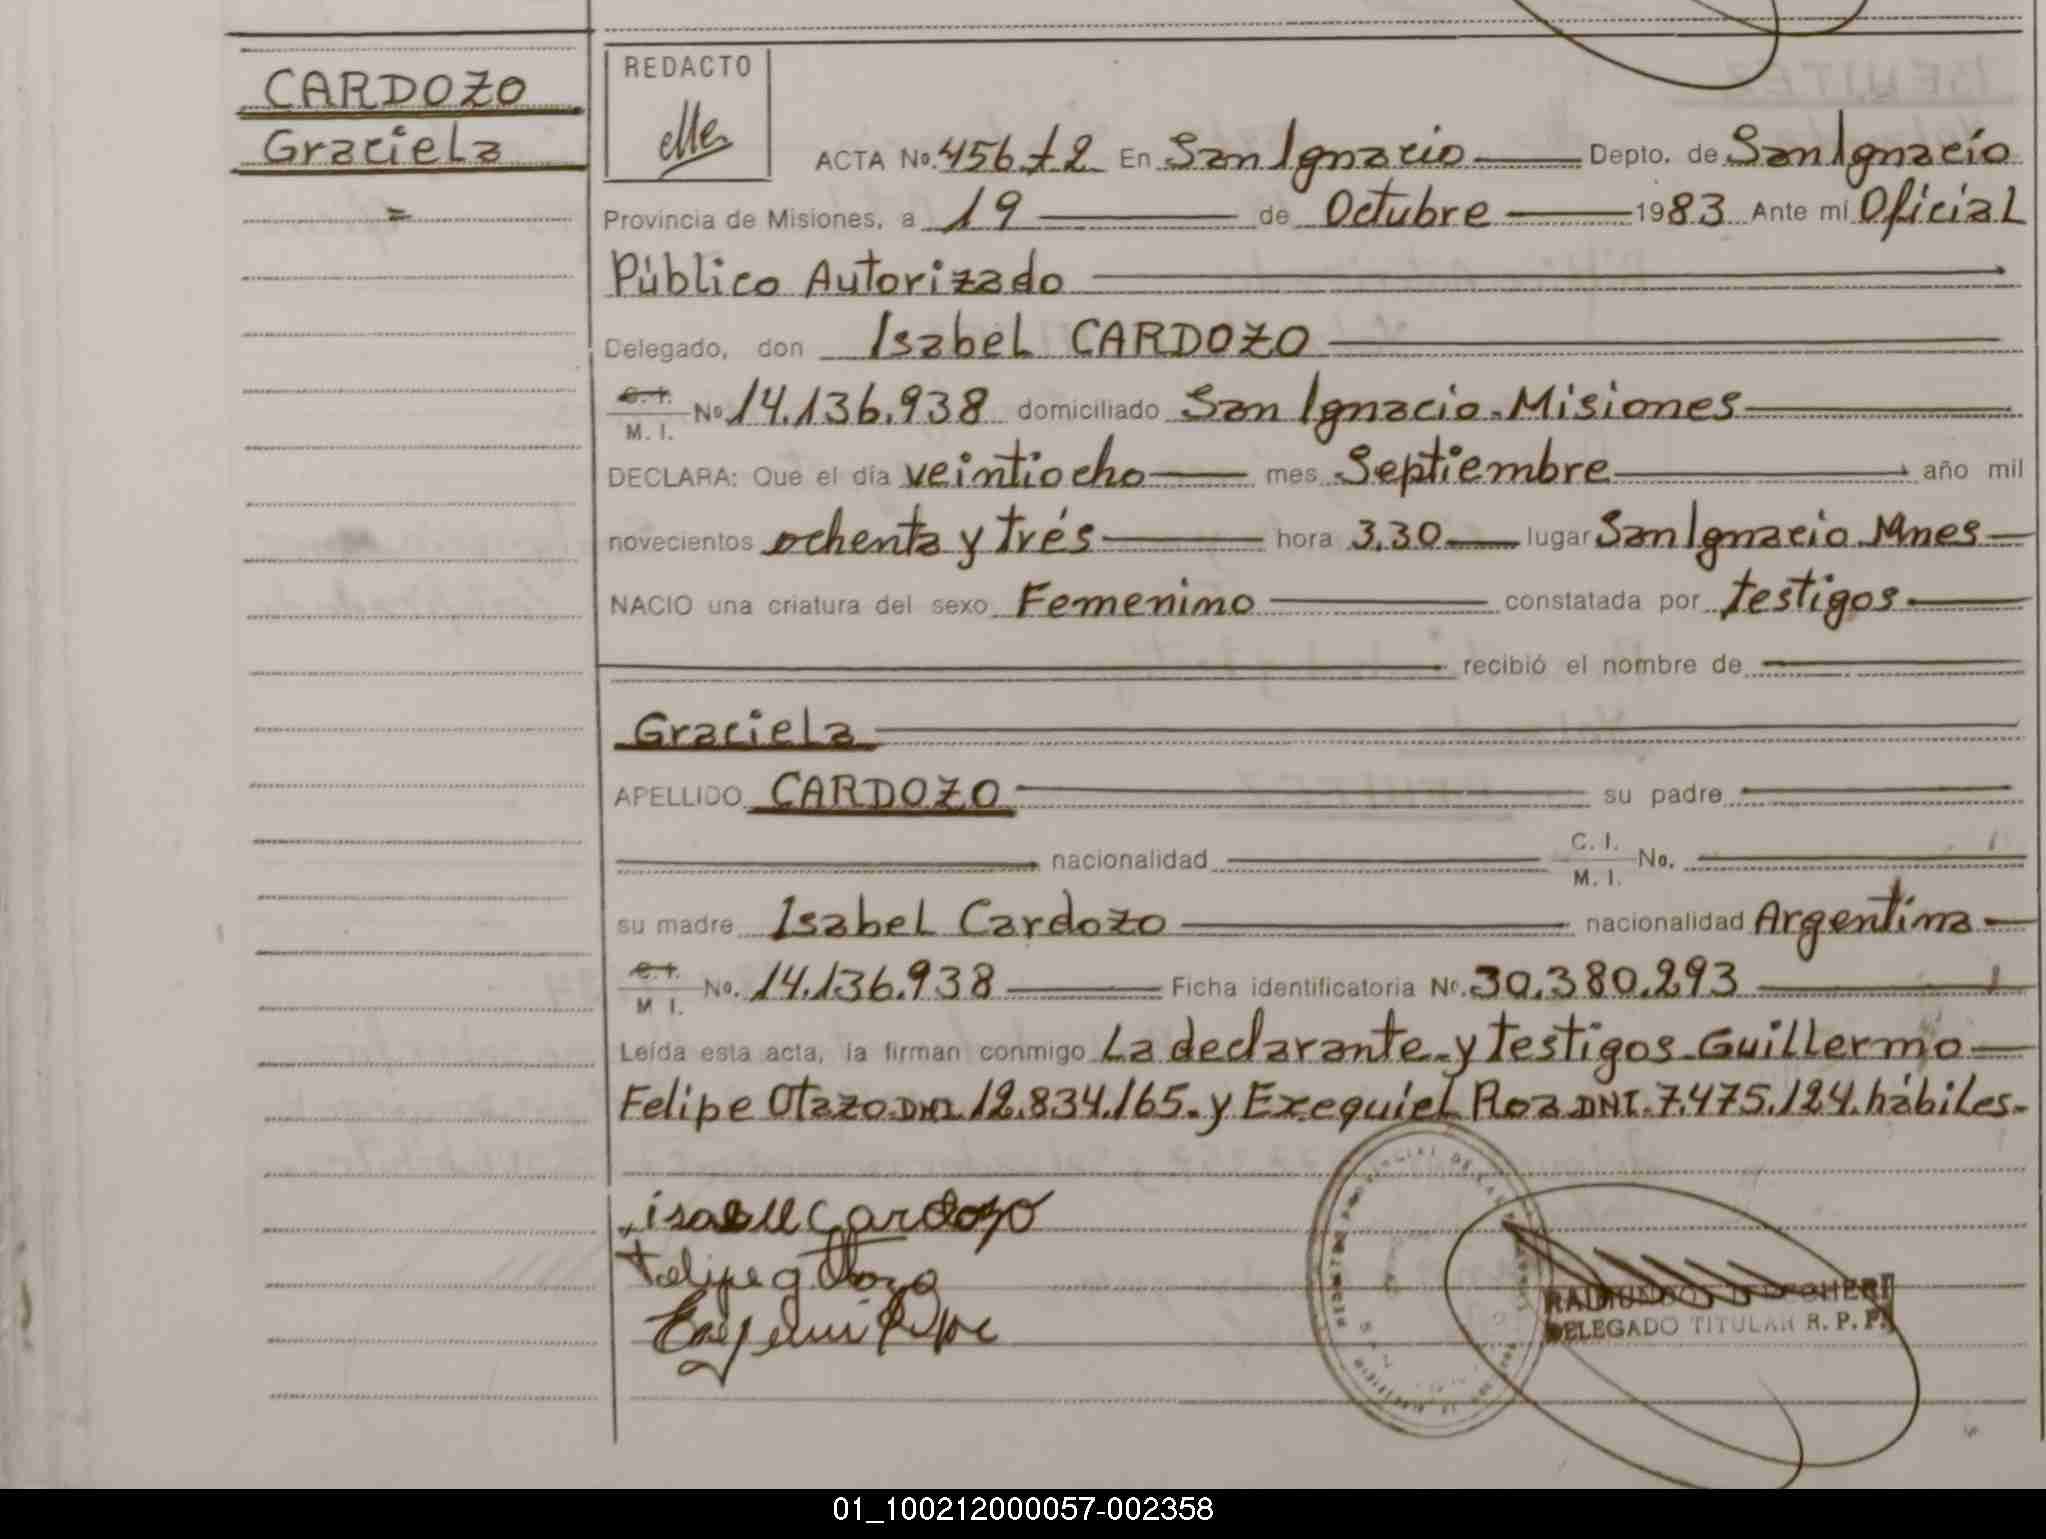 CARDOZO
Graciela
=
REDACTO
ACTA No. 456.t2 En San Ignacio Depto. de San Ignacio
Provincia de Misiones, a 19 de Octubre 1983 Ante mi Oficial
Público Autorizado
Delegado, don Isabel CARDOZO
C.I. M. I. No 14.136.938 domiciliado San Ignacio. Misiones
DECLARA: Que el día veintiocho mes Septiembre año mil
novecientos ochenta y trés hora 3.30 lugar San Ignacio Mnes
NACIO una criatura del sexo Femenino constatada por testigos
recibió el nombre de
Graciela
APELLIDO CARDOZO su padre
nacionalidad C. I. M. I. No.
su madre Isabel Cardozo nacionalidad Argentina
C.I. M I. No. 14.136.938 Ficha identificatoria No. 30.380.293
Leída esta acta, la firman conmigo La declarante y testigos Guillermo
Felipe Otazo DNI. 12.834.165. y Exequiel Roa DNI. 7.475.124. hábiles.
isabel Cardozo
Felipe g Otazo
RAIMUNDO
DELEGADO TITULAR R. P. P.
01_100212000057-002358